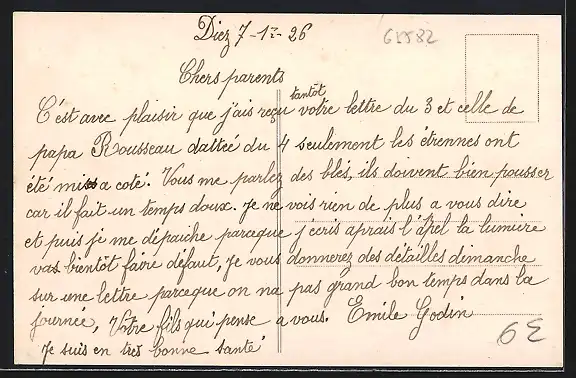 Diez 7-12-26
61582
Chers parents
tantôt
C'est avec plaisir que j'ais reçu votre lettre du 3 et celle de
papa Rousseau dattée du 4 seulement les étrennes ont
été miss a coté. Vous me parlez des blés, ils doivent bien pousser
car il fait un temps doux. Je ne vois rien de plus a vous dire
et puis je me dépaiche parceque j'écris aprais l'apel la lumiere
vas bientôt faire défaut, je vous donnerez des détailles dimanche
sur une lettre parceque on na pas grand bon temps dans la
journée, Votre fils qui pense a vous. Emile Godin
Je suis en tres bonne santé
6E